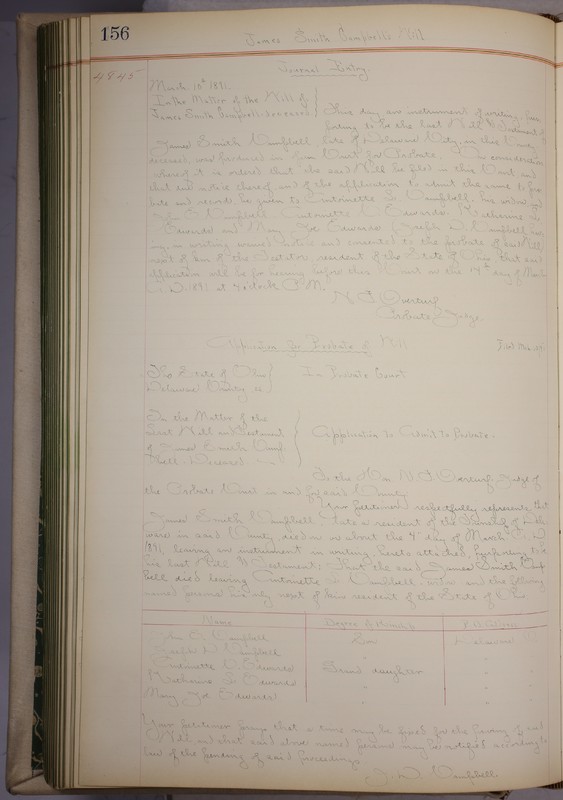 156
James Smith Campbell's Will
4845
Journal Entry.
March 10th 1891.
In the Matter of the Will of
James Smith Campbell, deceased
This day an instrument of writing, pur-
porting to be the last Will & Testament of
James Smith Campbell, late of Delaware City, in this County
deceased, was produced in open Court for Probate. On consideration
whereof it is ordered that the said Will be filed in this Court and
that due notice thereof, and of the application to admit the same to pro-
bate and record be given to Antoinette S. Campbell, his widow, and
John C. Campbell, Antoinette C. Edwards, Katherine S.
Edwards and Mary Zoe Edwards (Joseph W. Campbell hav-
ing in writing waived notice and consented to the probate of said Will)
next of kin of the Testator, resident of the State of Ohio that said
application will be for hearing before this Court on the 14th day of March
A. D. 1891, at o'clock P. M.
N. F. Overturf
Probate Judge.
Application for Probate of Will
The State of Ohio
Delaware County, ss.
In Probate Court
In the Matter of the
Last Will and Testament
of James Smith Camp-
bell, Deceased
Application to Admit to Probate.
To the Hon. N. F. Overturf, Judge of
the Probate Court in and for said County
Your Petitioner respectfully represents that
James Smith Campbell, late a resident of the of Dela
ware in said County, died on or about the day of March A. D.
1891, leaving an instrument in writing, hereto attached, purporting to be
his last Will & Testament; That the said James Smith Camp
bell died leaving Antoinette S. Campbell, widow and the following
named persons his only next of kin resident of the State of Ohio.
Name Degree of Kinship P. O. Address
John C. Campbell Son Delaware
Joseph W. Campbell
Antoinette C. Edwards Grand daughter
Katherine S. Edwards "
Mary Zoe Edwards "
Your petitioner prays that a time may be fixed for the proving of said
Will and that said above named persons may be notified according to
law of the pendency of said proceedings
J. W. Campbell.